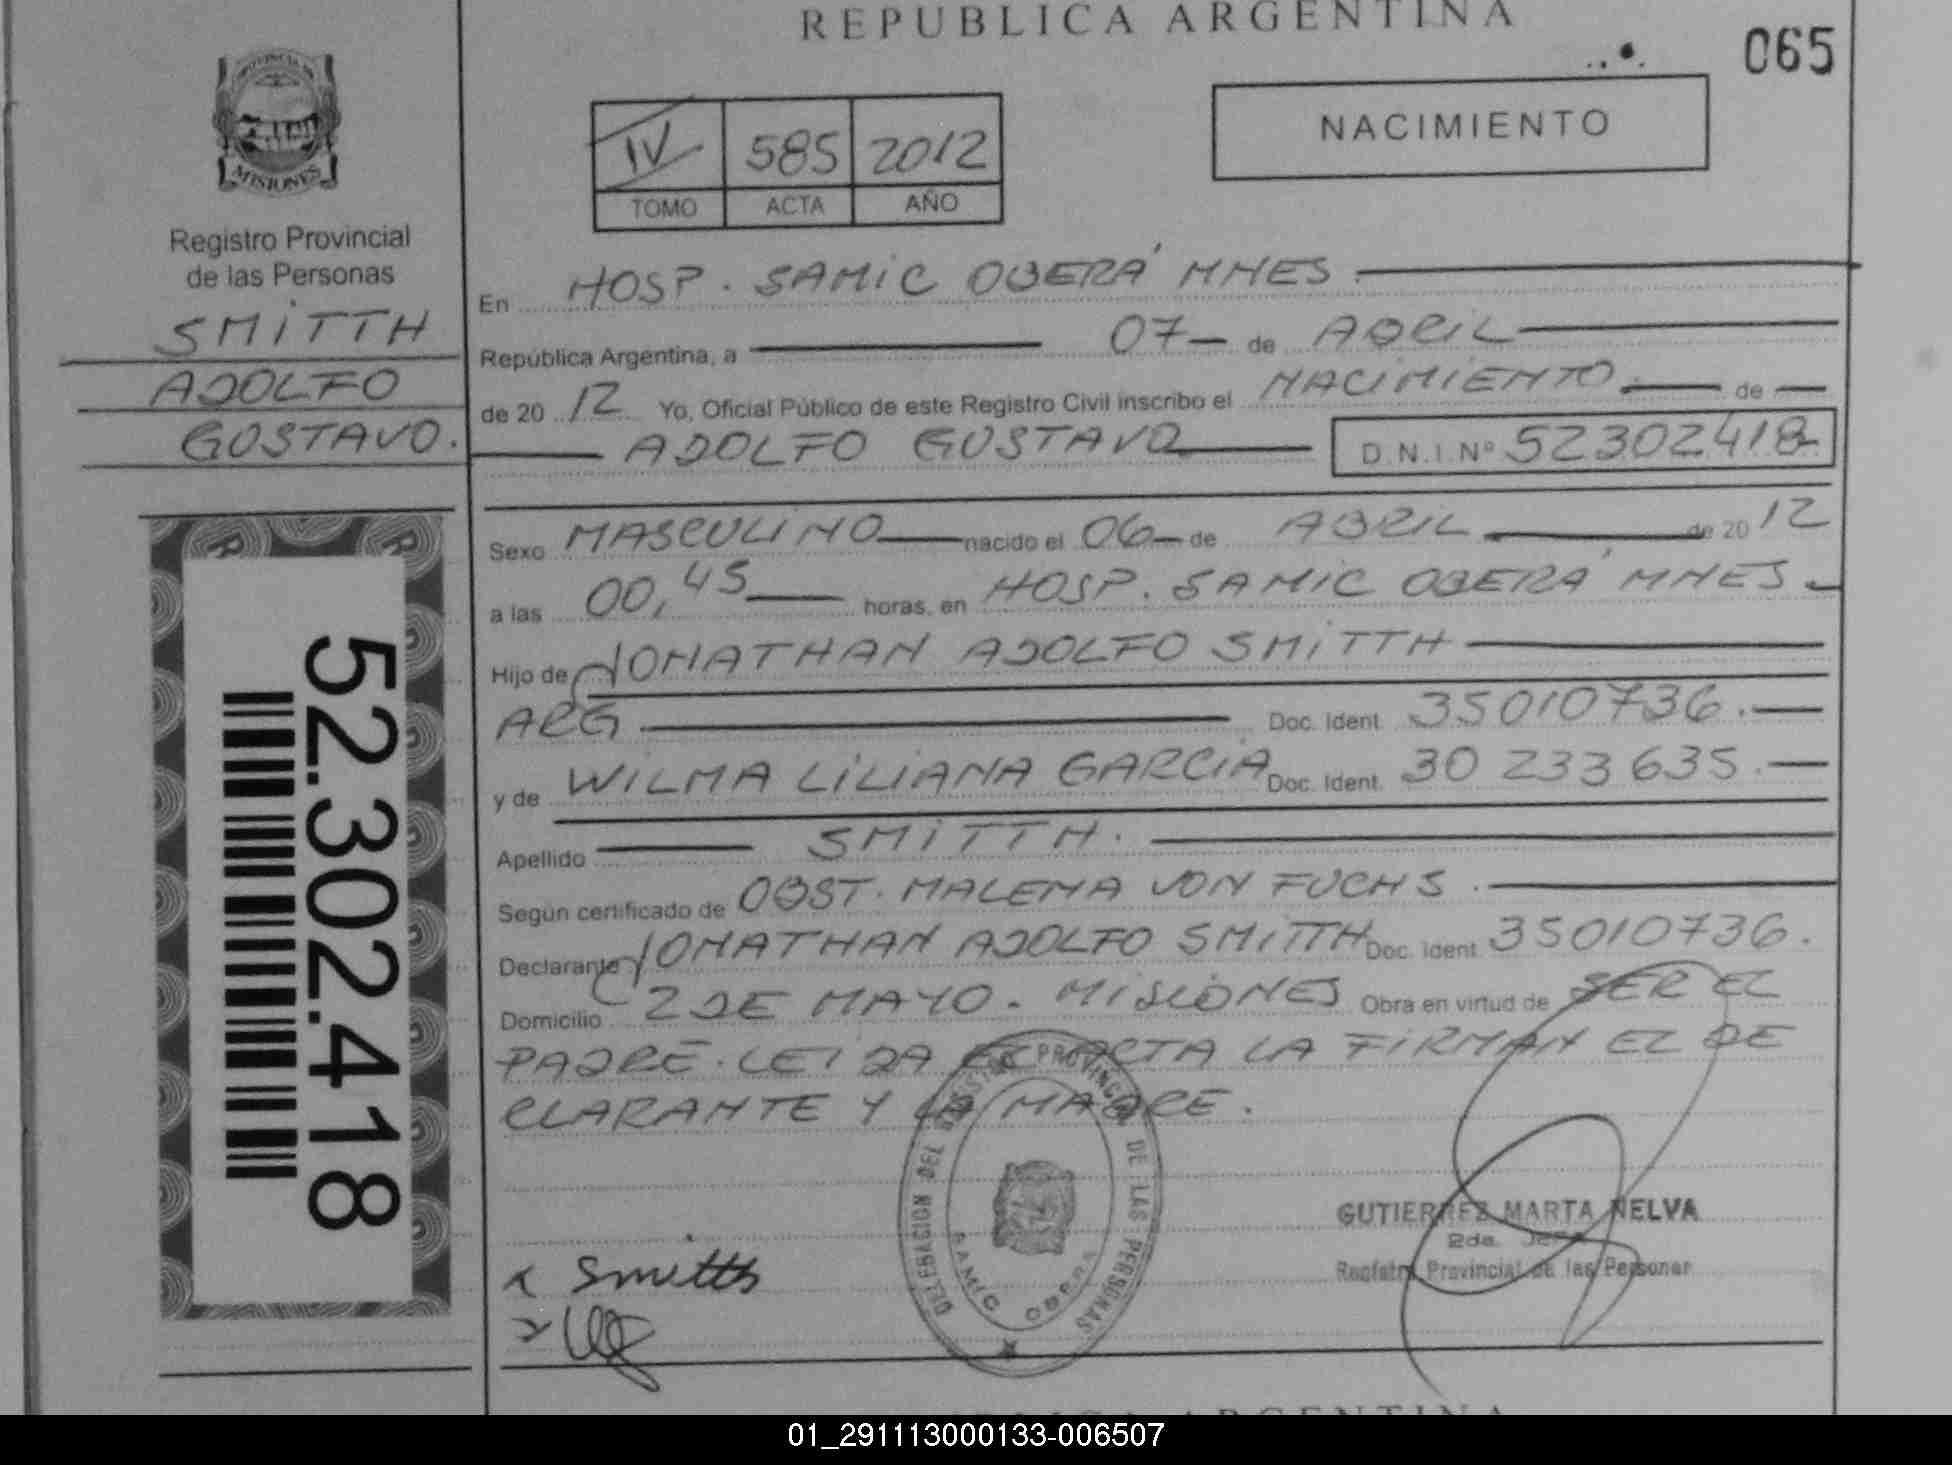 REPUBLICA ARGENTINA
065
PROVINCIA DE
MISIONES
Registro Provincial
de las Personas
SMITTH
ADOLFO
GUSTAVO.
52.302.418
IV 585 2012
TOMO ACTA AÑO
NACIMIENTO
En HOSP. SAMIC OBERÁ MNES
República Argentina, a 07 de ABRIL
de 20 12 Yo, Oficial Público de este Registro Civil inscribo el NACIMIENTO de
ADOLFO GUSTAVO D.N.I. Nº 52302418
Sexo MASCULINO nacido el 06 de ABRIL de 20 12
a las 00,45 horas, en HOSP. SAMIC OBERÁ MNES
Hijo de JONATHAN ADOLFO SMITTH
ARG Doc. Ident. 35010736.
y de WILMA LILIANA GARCIA Doc. Ident. 30 233 635.
Apellido SMITTH.
Según certificado de OBST. MALENA VON FUCHS.
Declarante JONATHAN ADOLFO SMITTH Doc. Ident. 35010736.
Domicilio 2 DE MAYO. MISIONES Obra en virtud de SER EL
PADRE. LEIDA EL ACTA LA FIRMAN EL DE
CLARANTE Y LA MADRE.
DELEGACION DEL REGISTRO PROVINCIAL DE LAS PERSONAS
SAMIC OBERA
GUTIERREZ MARTA NELVA
2da. Jefe
Registro Provincial de las Personas
x Smitth
01_291113000133-006507